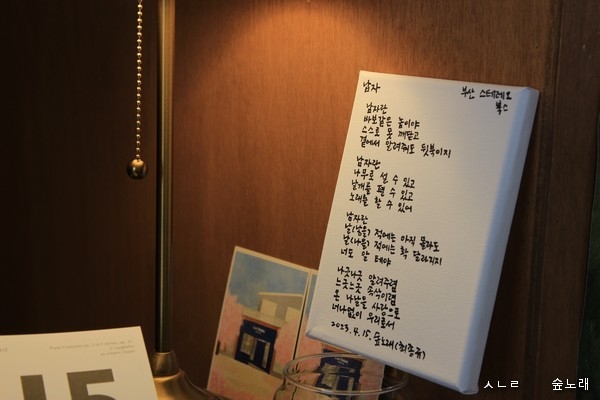 남자
부산 스테레오
북스
남자란
바보같은 놈이야
스스로 못 깨닫고
곁에서 알려줘도 뒷북이지
남자란
나무로 설 수 있고
날개를 펼 수 있고
노래를 할 수 있어
남자란
날(남을) 적에는 아직 몰라도
날(나를) 적에는 확 달라지지
너도 알 테야
나긋나긋 알려주렴
느긋느긋 속삭이렴
온 나날을 사랑으로
너나없이 우리로서
2023.4.15. 숲노래(최종규)
15
ㅅㄴㄹ 숲노래